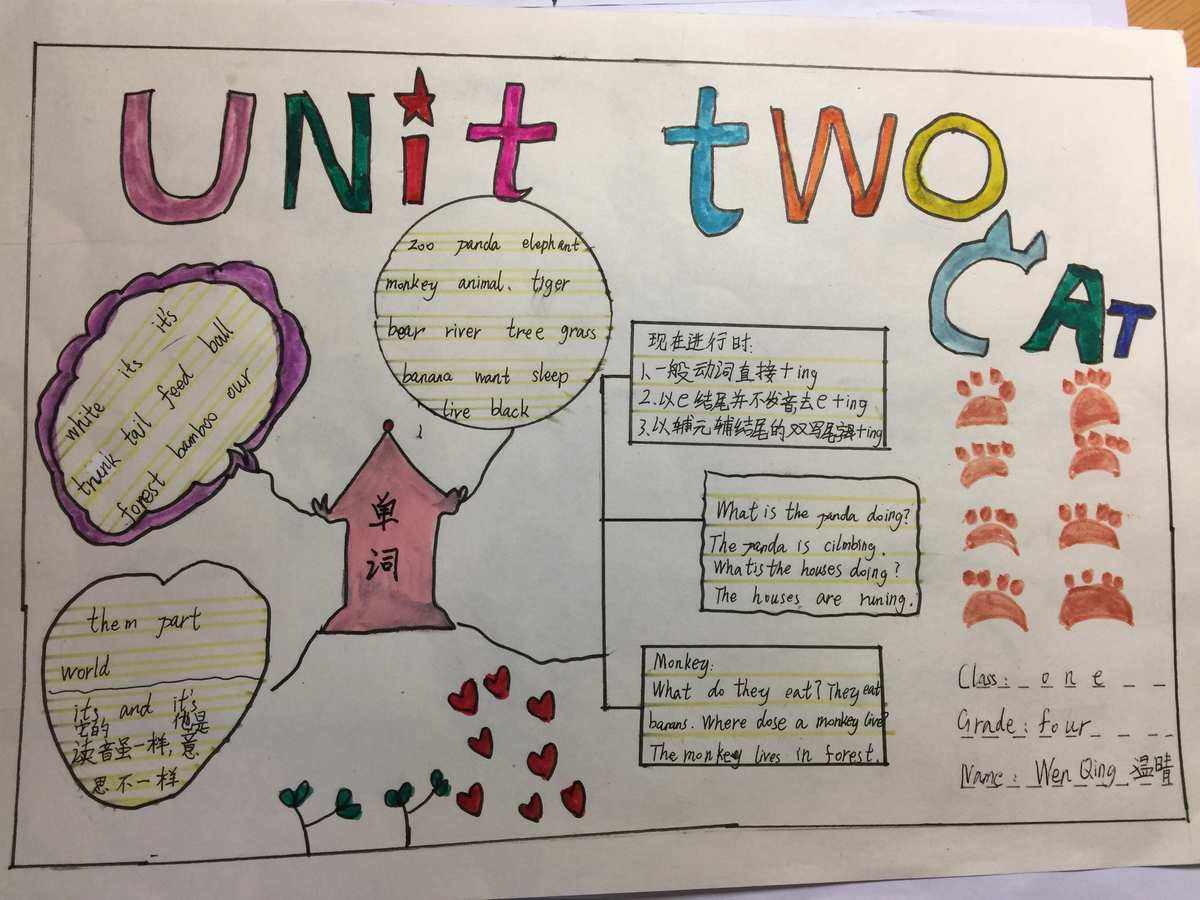 UNit two
CAT
zoo panda elephant
monkey animal. tiger
bear river tree grass
banana want sleep
live black
white its it's
trunk tail feed ball
forest bamboo our
单
词
them part
world
its and it's
它的 他是
读音虽一样,意
思不一样
现在进行时:
1、一般动词直接+ing
2、以e结尾并不发音,去e+ing
3、以辅元辅结尾的双写尾 +ing
What is the panda doing?
The panda is cilmbing.
Whatisthe houses doing?
The houses are runing.
Monkey:
What do they eat? They eat
banans. Where dose a monkey live?
The monkey lives in forest.
Class: one
Grade: four
Name: Wen Qing 温晴